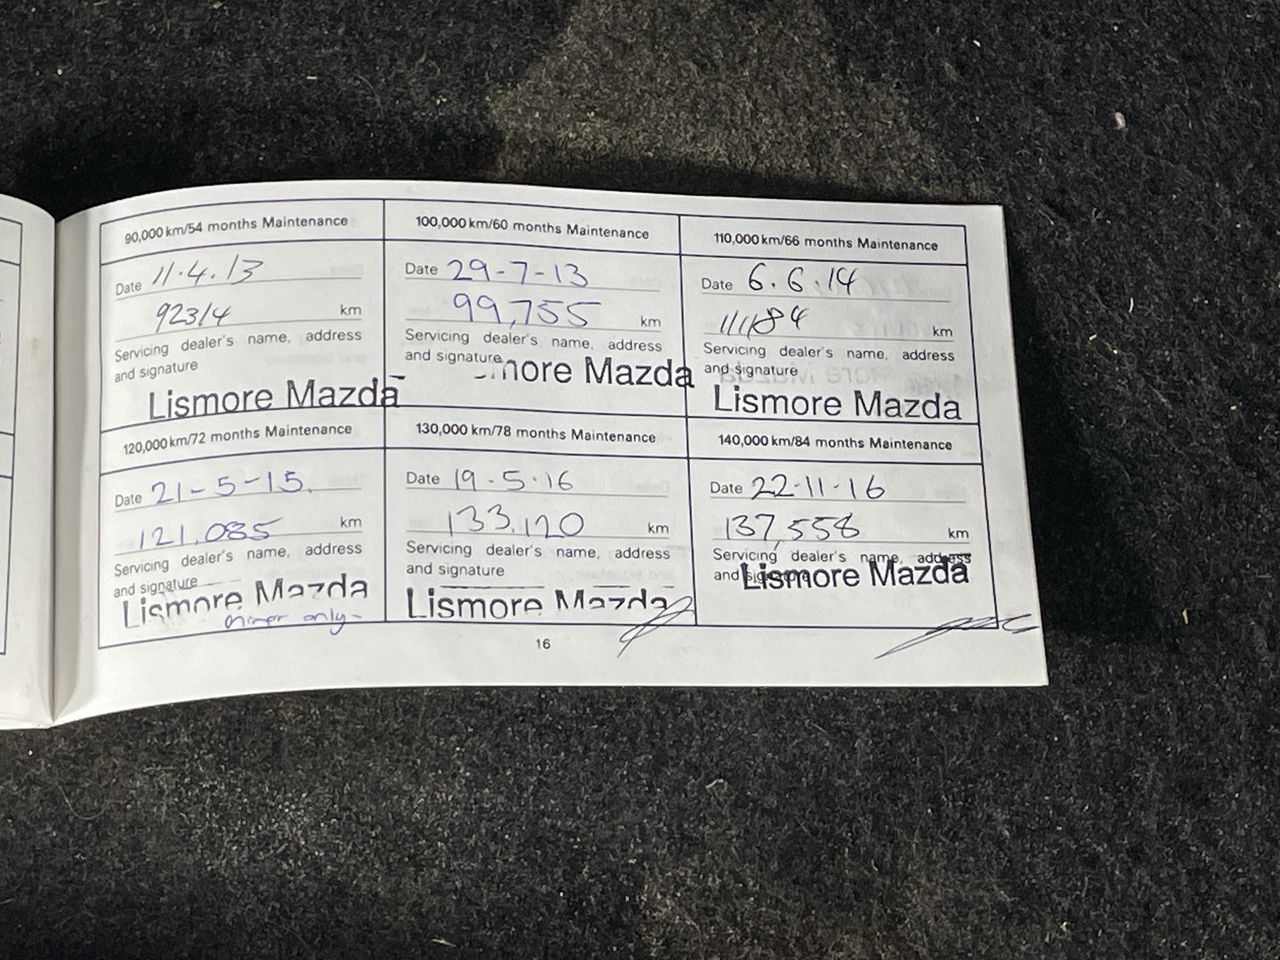 90,000 km/54 months Maintenance
Date 11.4.13
92314 km
Servicing dealer's name, address
and signature
Lismore Mazda
100,000 km/60 months Maintenance
Date 29-7-13
99,755 km
Servicing dealer's name, address
and signature
more Mazda
110,000 km/66 months Maintenance
Date 6.6.14
km
Servicing dealer's name, address
and signature
Lismore Mazda
120,000 km/72 months Maintenance
Date 21-5-15.
121,085 km
Servicing dealer's name, address
and signature
Lismore Mazda
minor only-
130,000 km/78 months Maintenance
Date 19.5.16
133,120 km
Servicing dealer's name, address
and signature
Lismore Mazda
140,000 km/84 months Maintenance
Date 22-11-16
137,558 km
Servicing dealer's name, address
and signature
Lismore Mazda
16